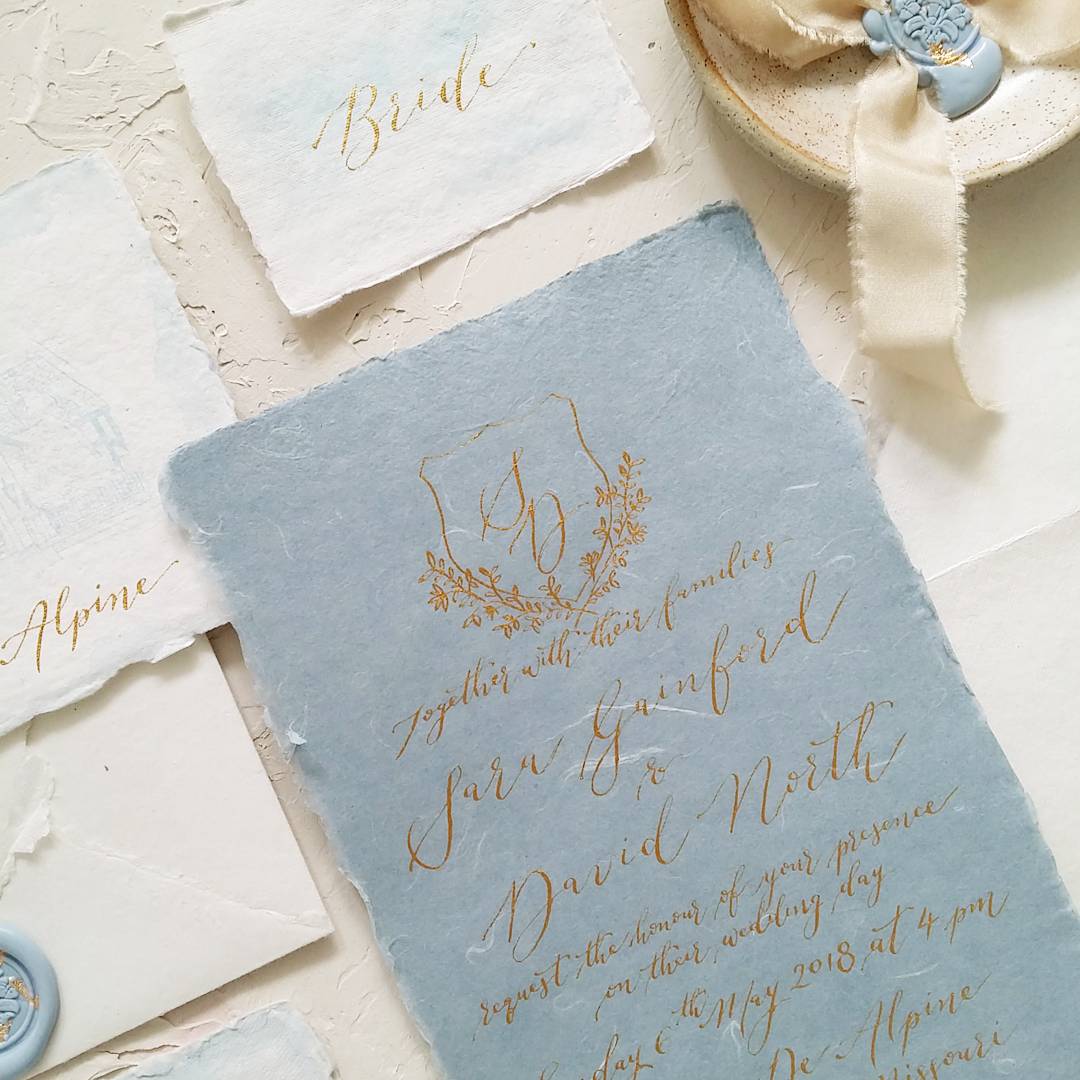 Bride
Alpine
S
D
Together with their families
Sara Gainford
&
David North
request the honour of your presence
on their wedding day
6th May 2018 at 4 pm
De Alpine
Missouri